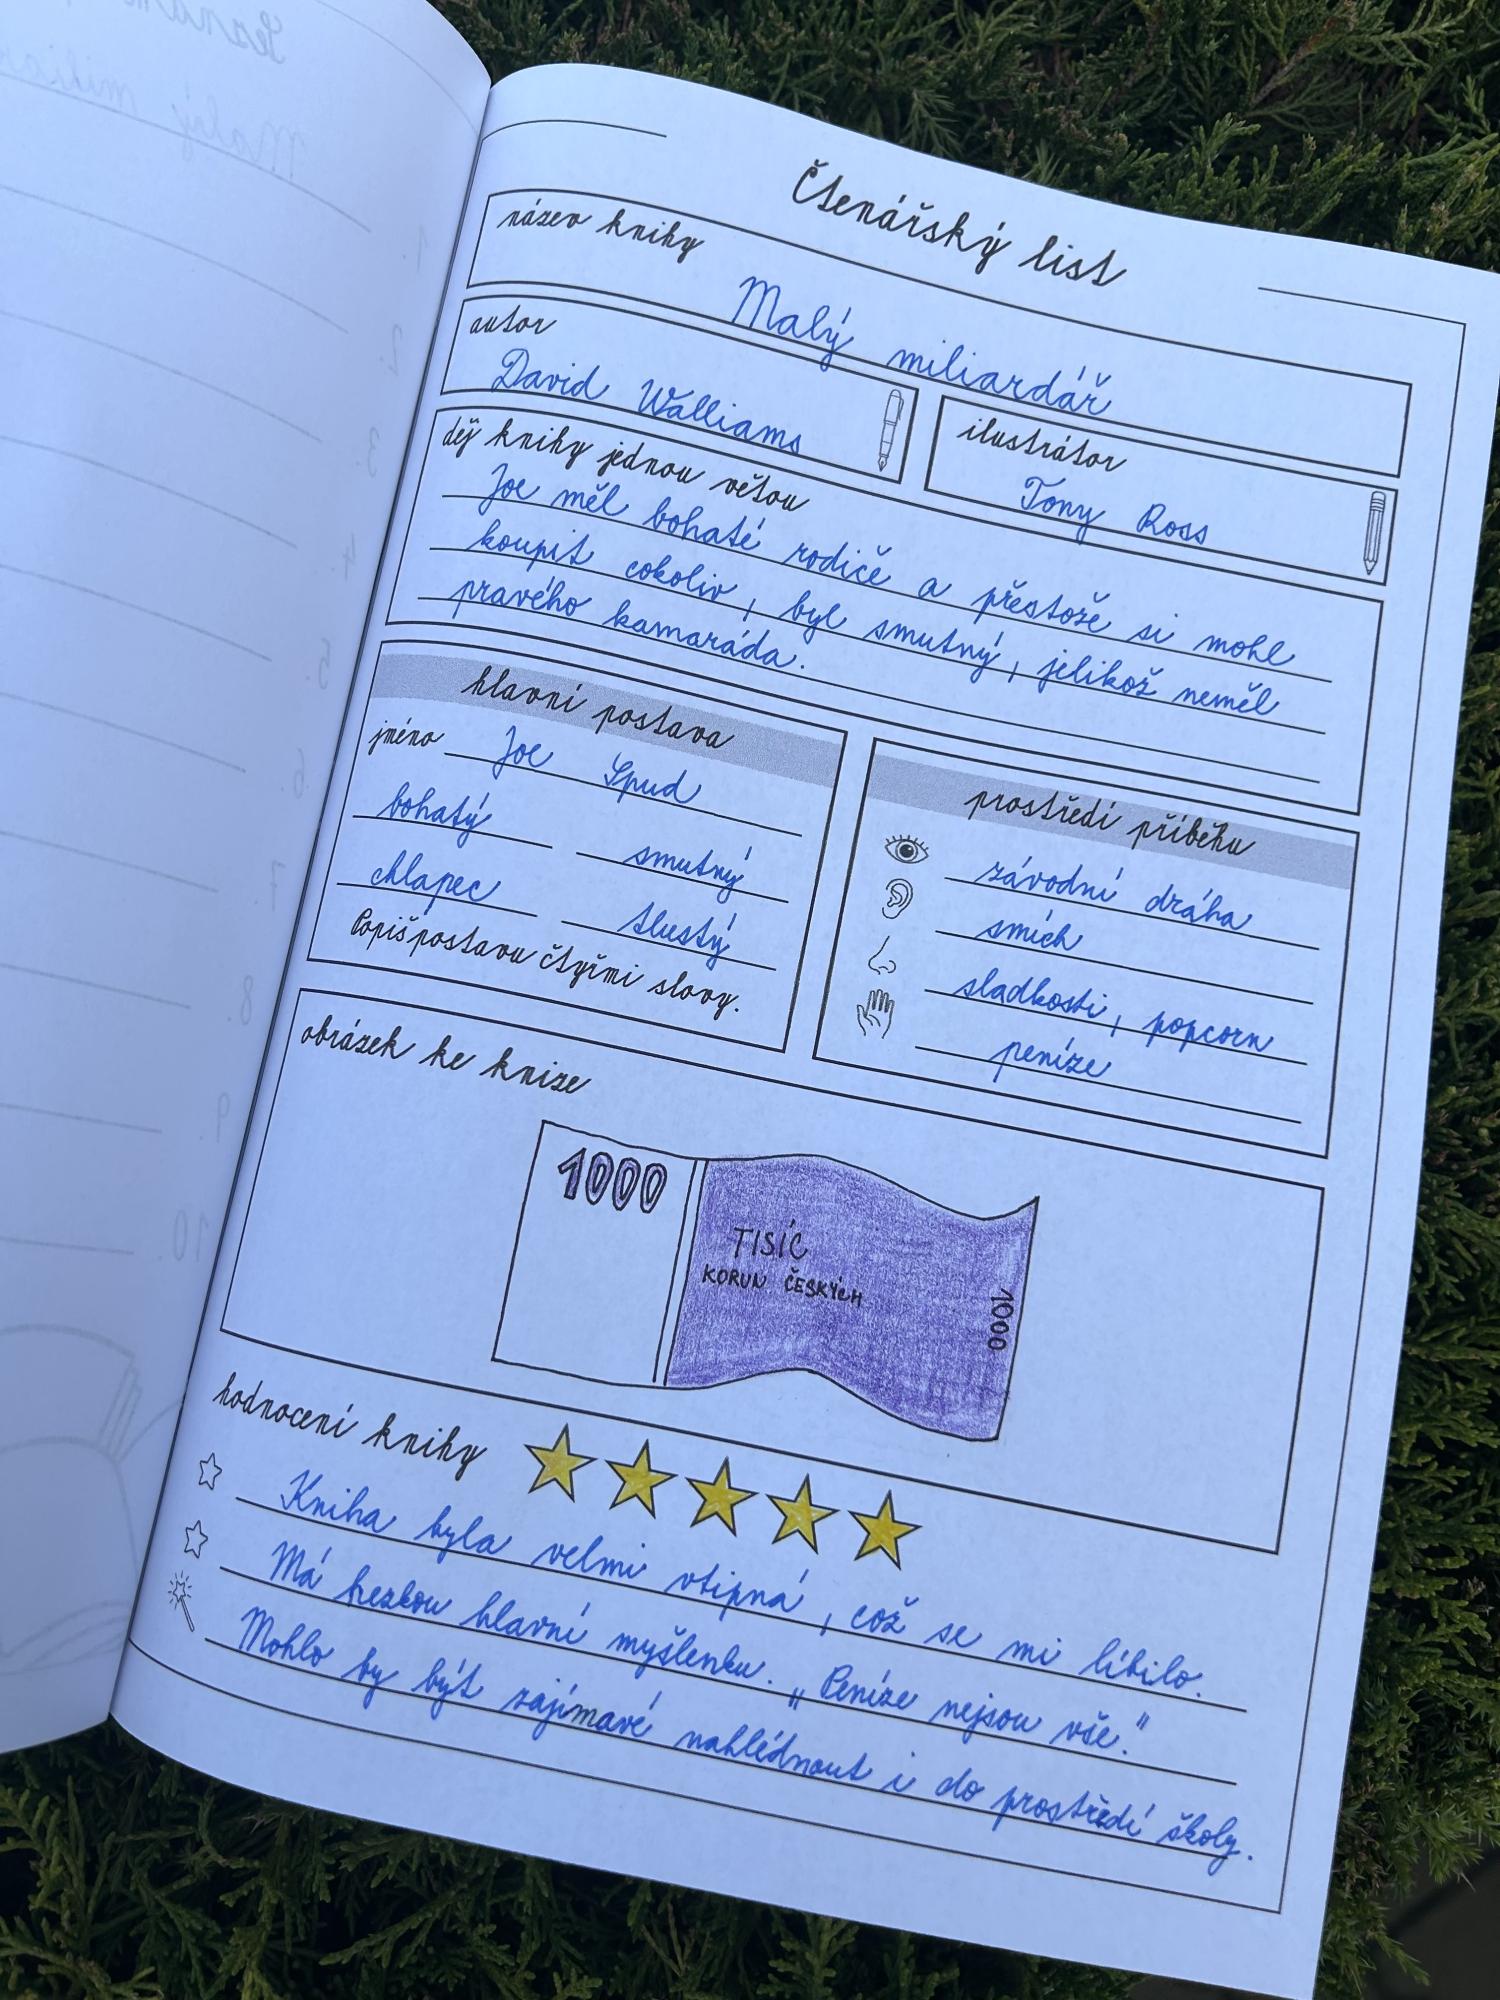 Seznam
Malý miliar
1.
2.
3.
4.
5.
6.
7.
8.
9.
10.
Čtenářský list
název knihy
Malý miliardář
autor
David Walliams
ilustrátor
Tony Ross
děj knihy jednou větou
Joe měl bohaté rodiče a přestože si mohl
koupit cokoliv, byl smutný, jelikož neměl
pravého kamaráda.
hlavní postava
jméno Joe Spud
bohatý smutný
chlapec tlustý
Popiš postavu čtyřmi slovy.
prostředí příběhu
závodní dráha
smích
sladkosti, popcorn
peníze
obrázek ke knize
1000
TISÍC
KORUN ČESKÝCH
1000
hodnocení knihy
Kniha byla velmi vtipná, což se mi líbilo.
Má hezkou hlavní myšlenku. „Peníze nejsou vše."
Mohlo by být zajímavé nahlédnout i do prostředí školy.